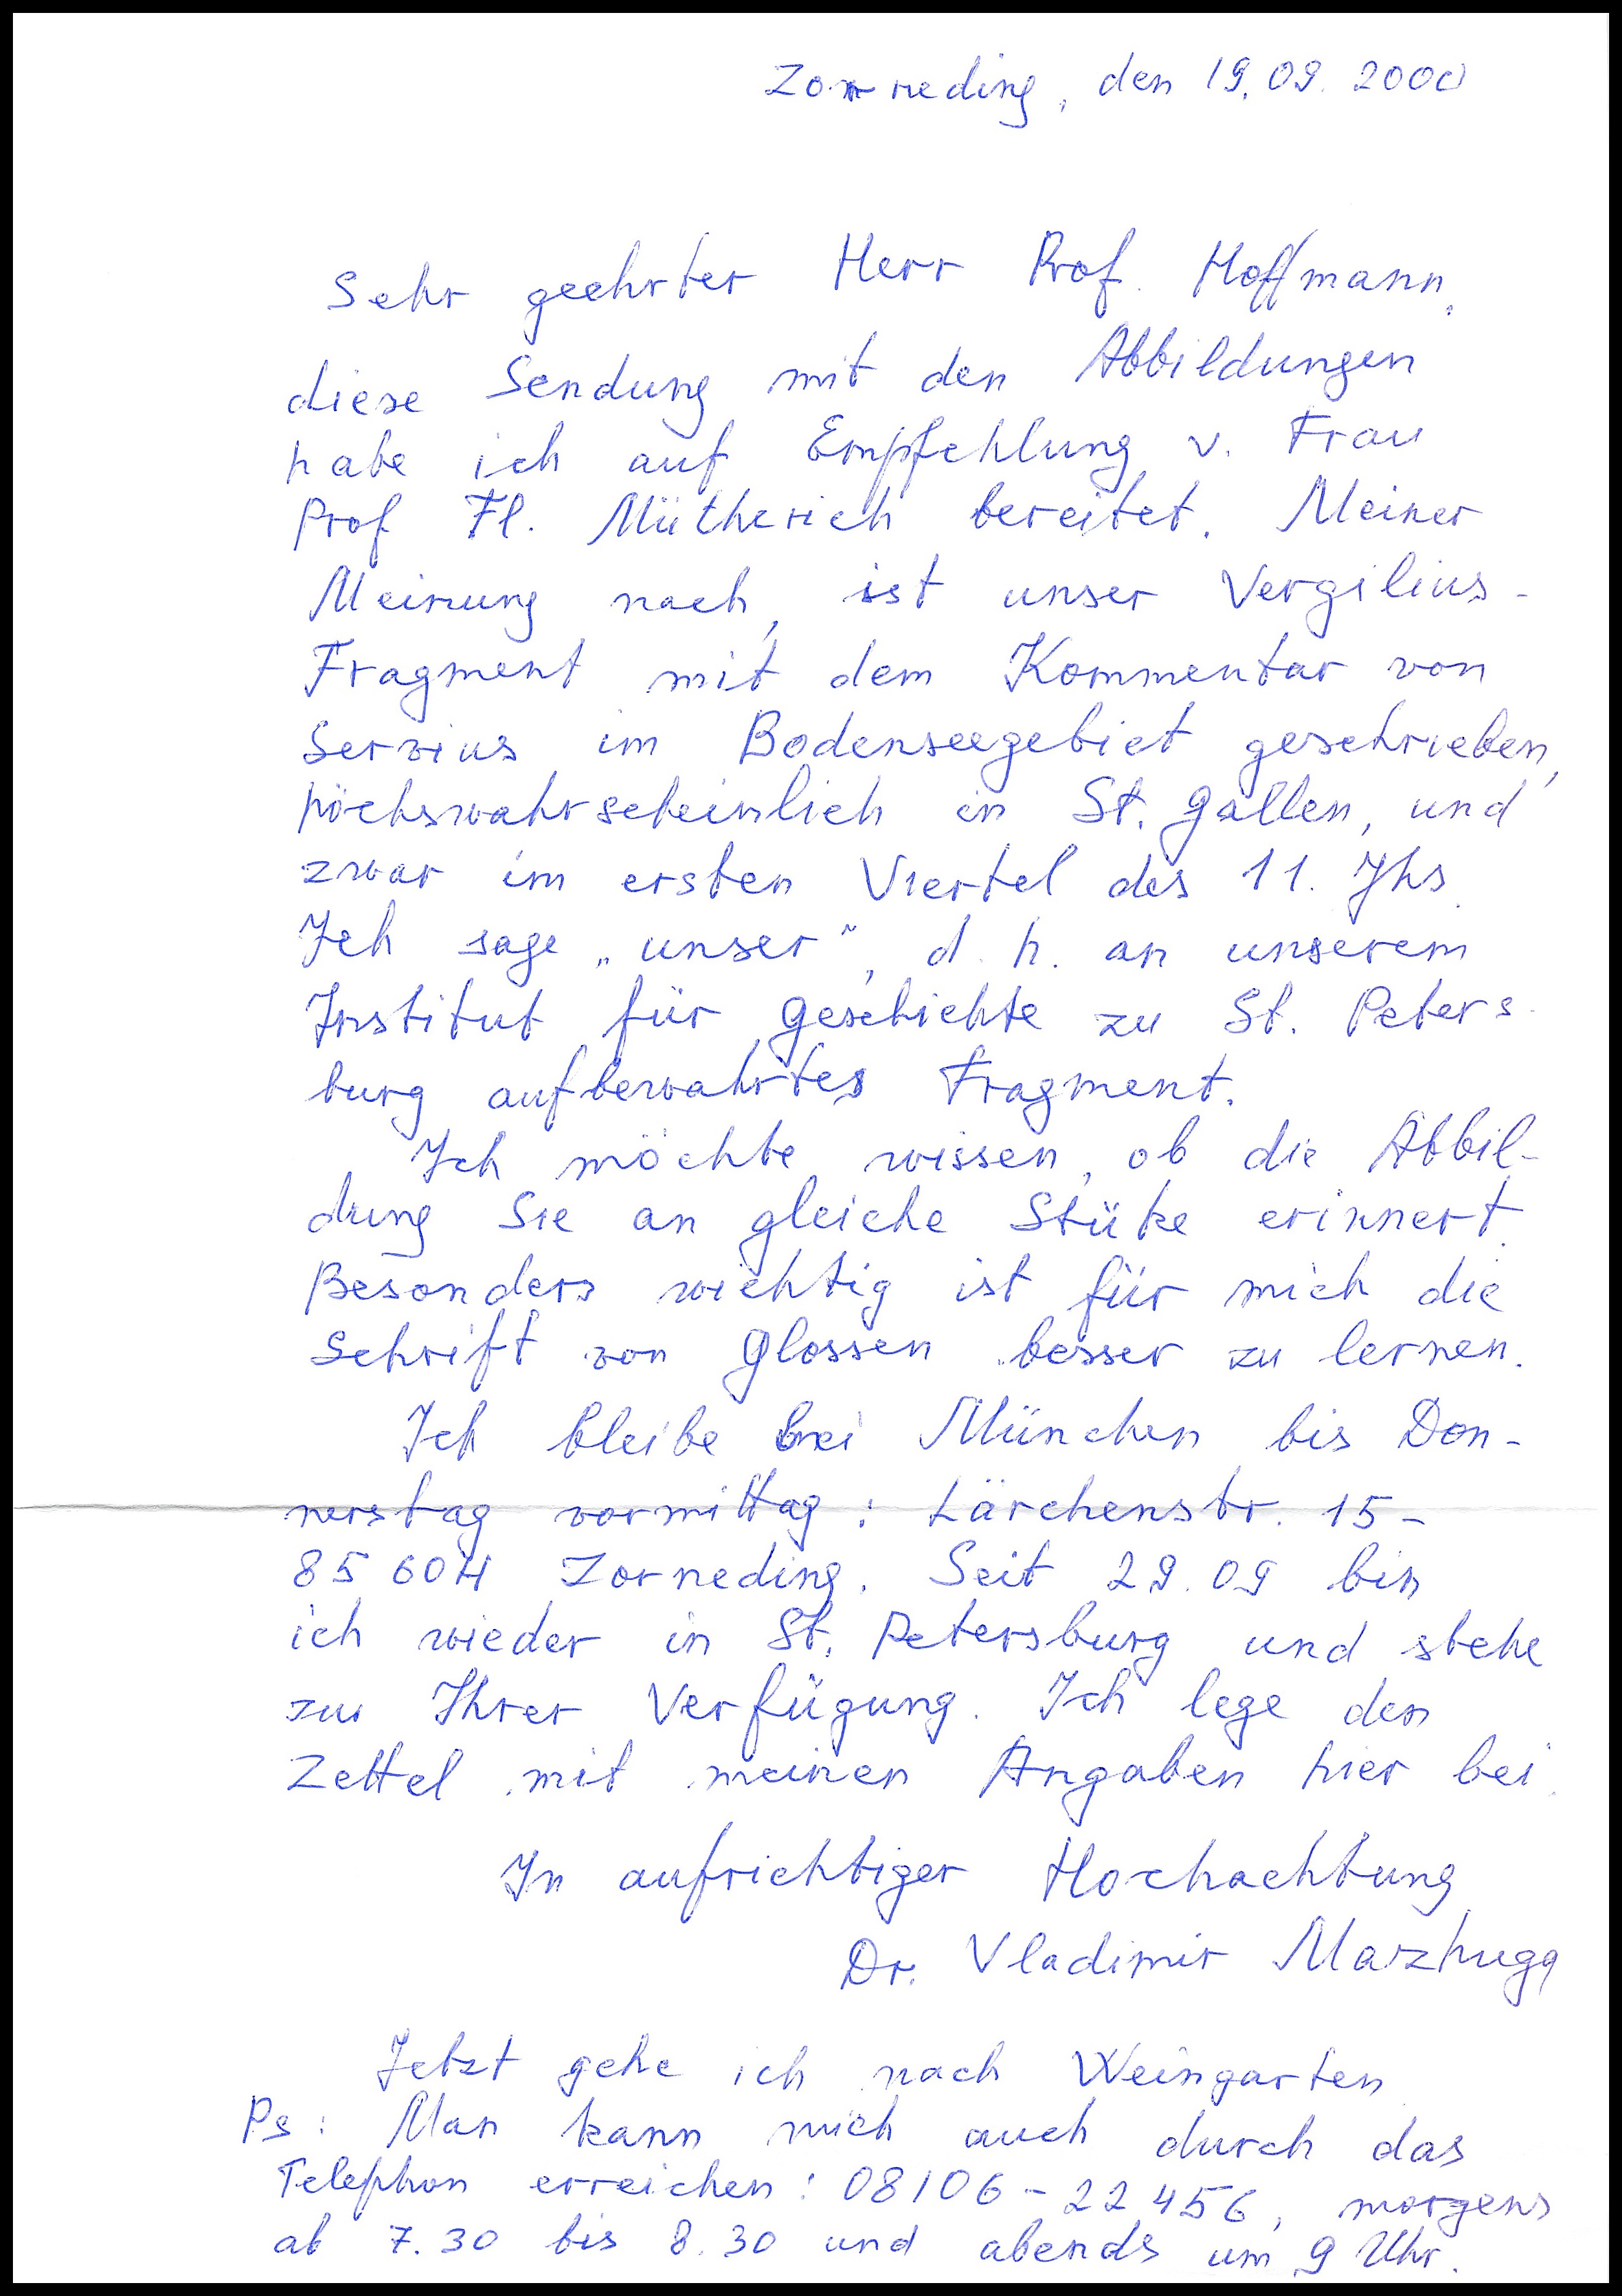 Zorneding, den 19.09.2000
Sehr geehrter Herr Prof. Hoffmann,
diese Sendung mit den Abbildungen
habe ich auf Empfehlung v. Frau
Prof Fl. Mütherich bereitet. Meiner
Meinung nach, ist unser Vergilius-
Fragment mit dem Kommentar von
Servius im Bodenseegebiet geschrieben,
höchswahrscheinlich in St. Gallen, und
zwar im ersten Viertel des 11. Jhs.
Ich sage „unser“, d. h. an unserem
Institut für Geschichte zu St. Peters-
burg aufbewahrtes Fragment.
Ich möchte wissen, ob die Abbil-
dung Sie an gleiche Stüke erinnert.
Besonders wichtig ist für mich die
Schrift von Glossen besser zu lernen.
Ich bleibe bei München bis Don-
nerstag vormittag: Lärchenstr. 15-
85604 Zorneding. Seit 29.09 bin
ich wieder in St. Petersburg und stehe
zu Ihrer Verfügung. Ich lege den
Zettel mit meinen Angaben hier bei.
In aufrichtiger Hochachtung
Dr. Vladimir Mazhuga
Jetzt gehe ich nach Weingarten
Ps: Man kann mich auch durch das
Telephon erreichen: 08106-22456, morgens
ab 7.30 bis 8.30 und abends um 9 Uhr.